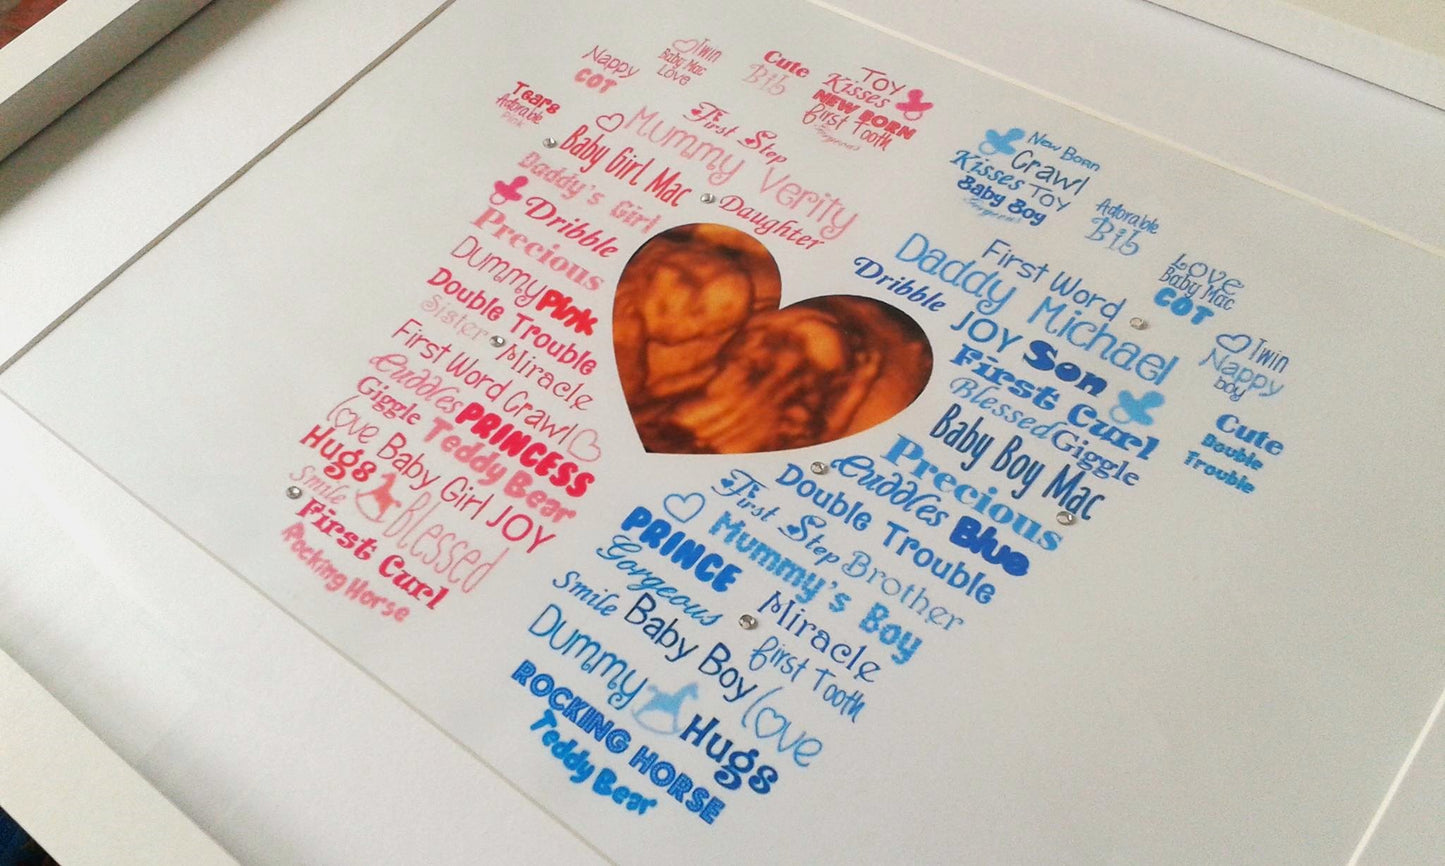 Nappy
COT
Twin
Baby Mac
Love
Cute
Bib
Toy
Kisses
NEW BORN
first Tooth
Gorgeous
Tears
Adorable
Pink
First Step
Mummy Verity
Baby Girl Mac
Daughter
Daddy's Girl
Dribble
Precious
Dummy Pink
Double Trouble
Sister Miracle
First Word Crawl
Cuddles PRINCESS
Giggle Teddy Bear
love Baby Girl JOY
Hugs
Smile
Blessed
First Curl
Rocking Horse
New Born
Crawl
Kisses Toy
Baby Boy
Gorgeous
Adorable
Bib
LOVE
Baby Mac
COT
Twin
Nappy
boy
Cute
Double
Trouble
First Word
Daddy Michael
Dribble
JOY Son
First Curl
Blessed Giggle
Baby Boy Mac
Precious
Cuddles Blue
Double Trouble
First Step Brother
PRINCE Mummy's Boy
Gorgeous Miracle
Smile Baby Boy first Tooth
Dummy love
Hugs
ROCKING HORSE
Teddy Bear